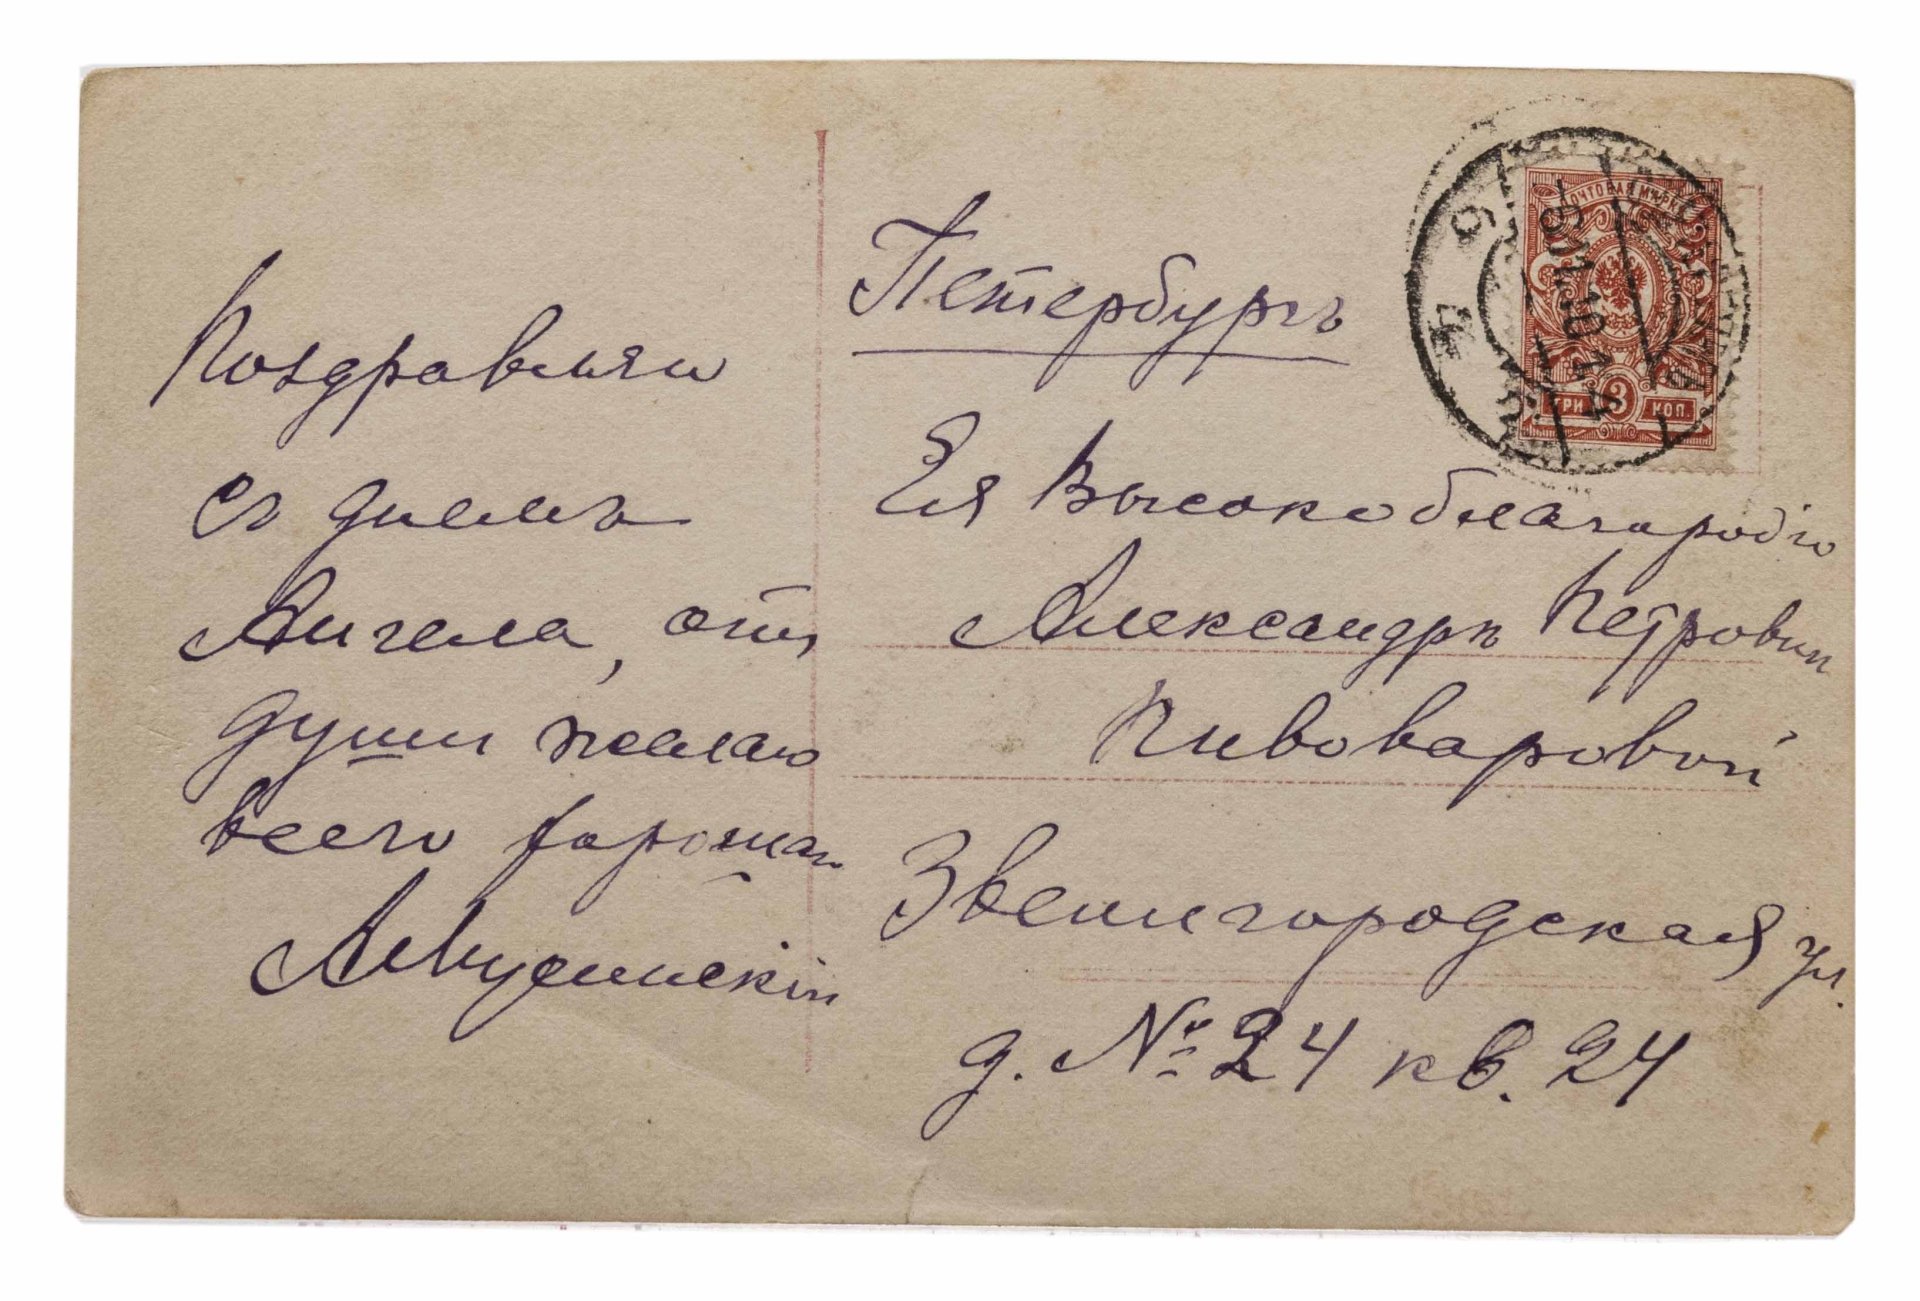 Поздравляю
съ днемъ
Ангела, отъ
души желаю
всего хорошаго
Петербургъ
Ея Высокоблагородію
Александрѣ Петровнѣ
Пивоваровой
Звенигородская ул.
д. № 24 кв. 24
ПОЧТОВАЯ МАРКА
ТРИ 3 КОП.
-6.11.10